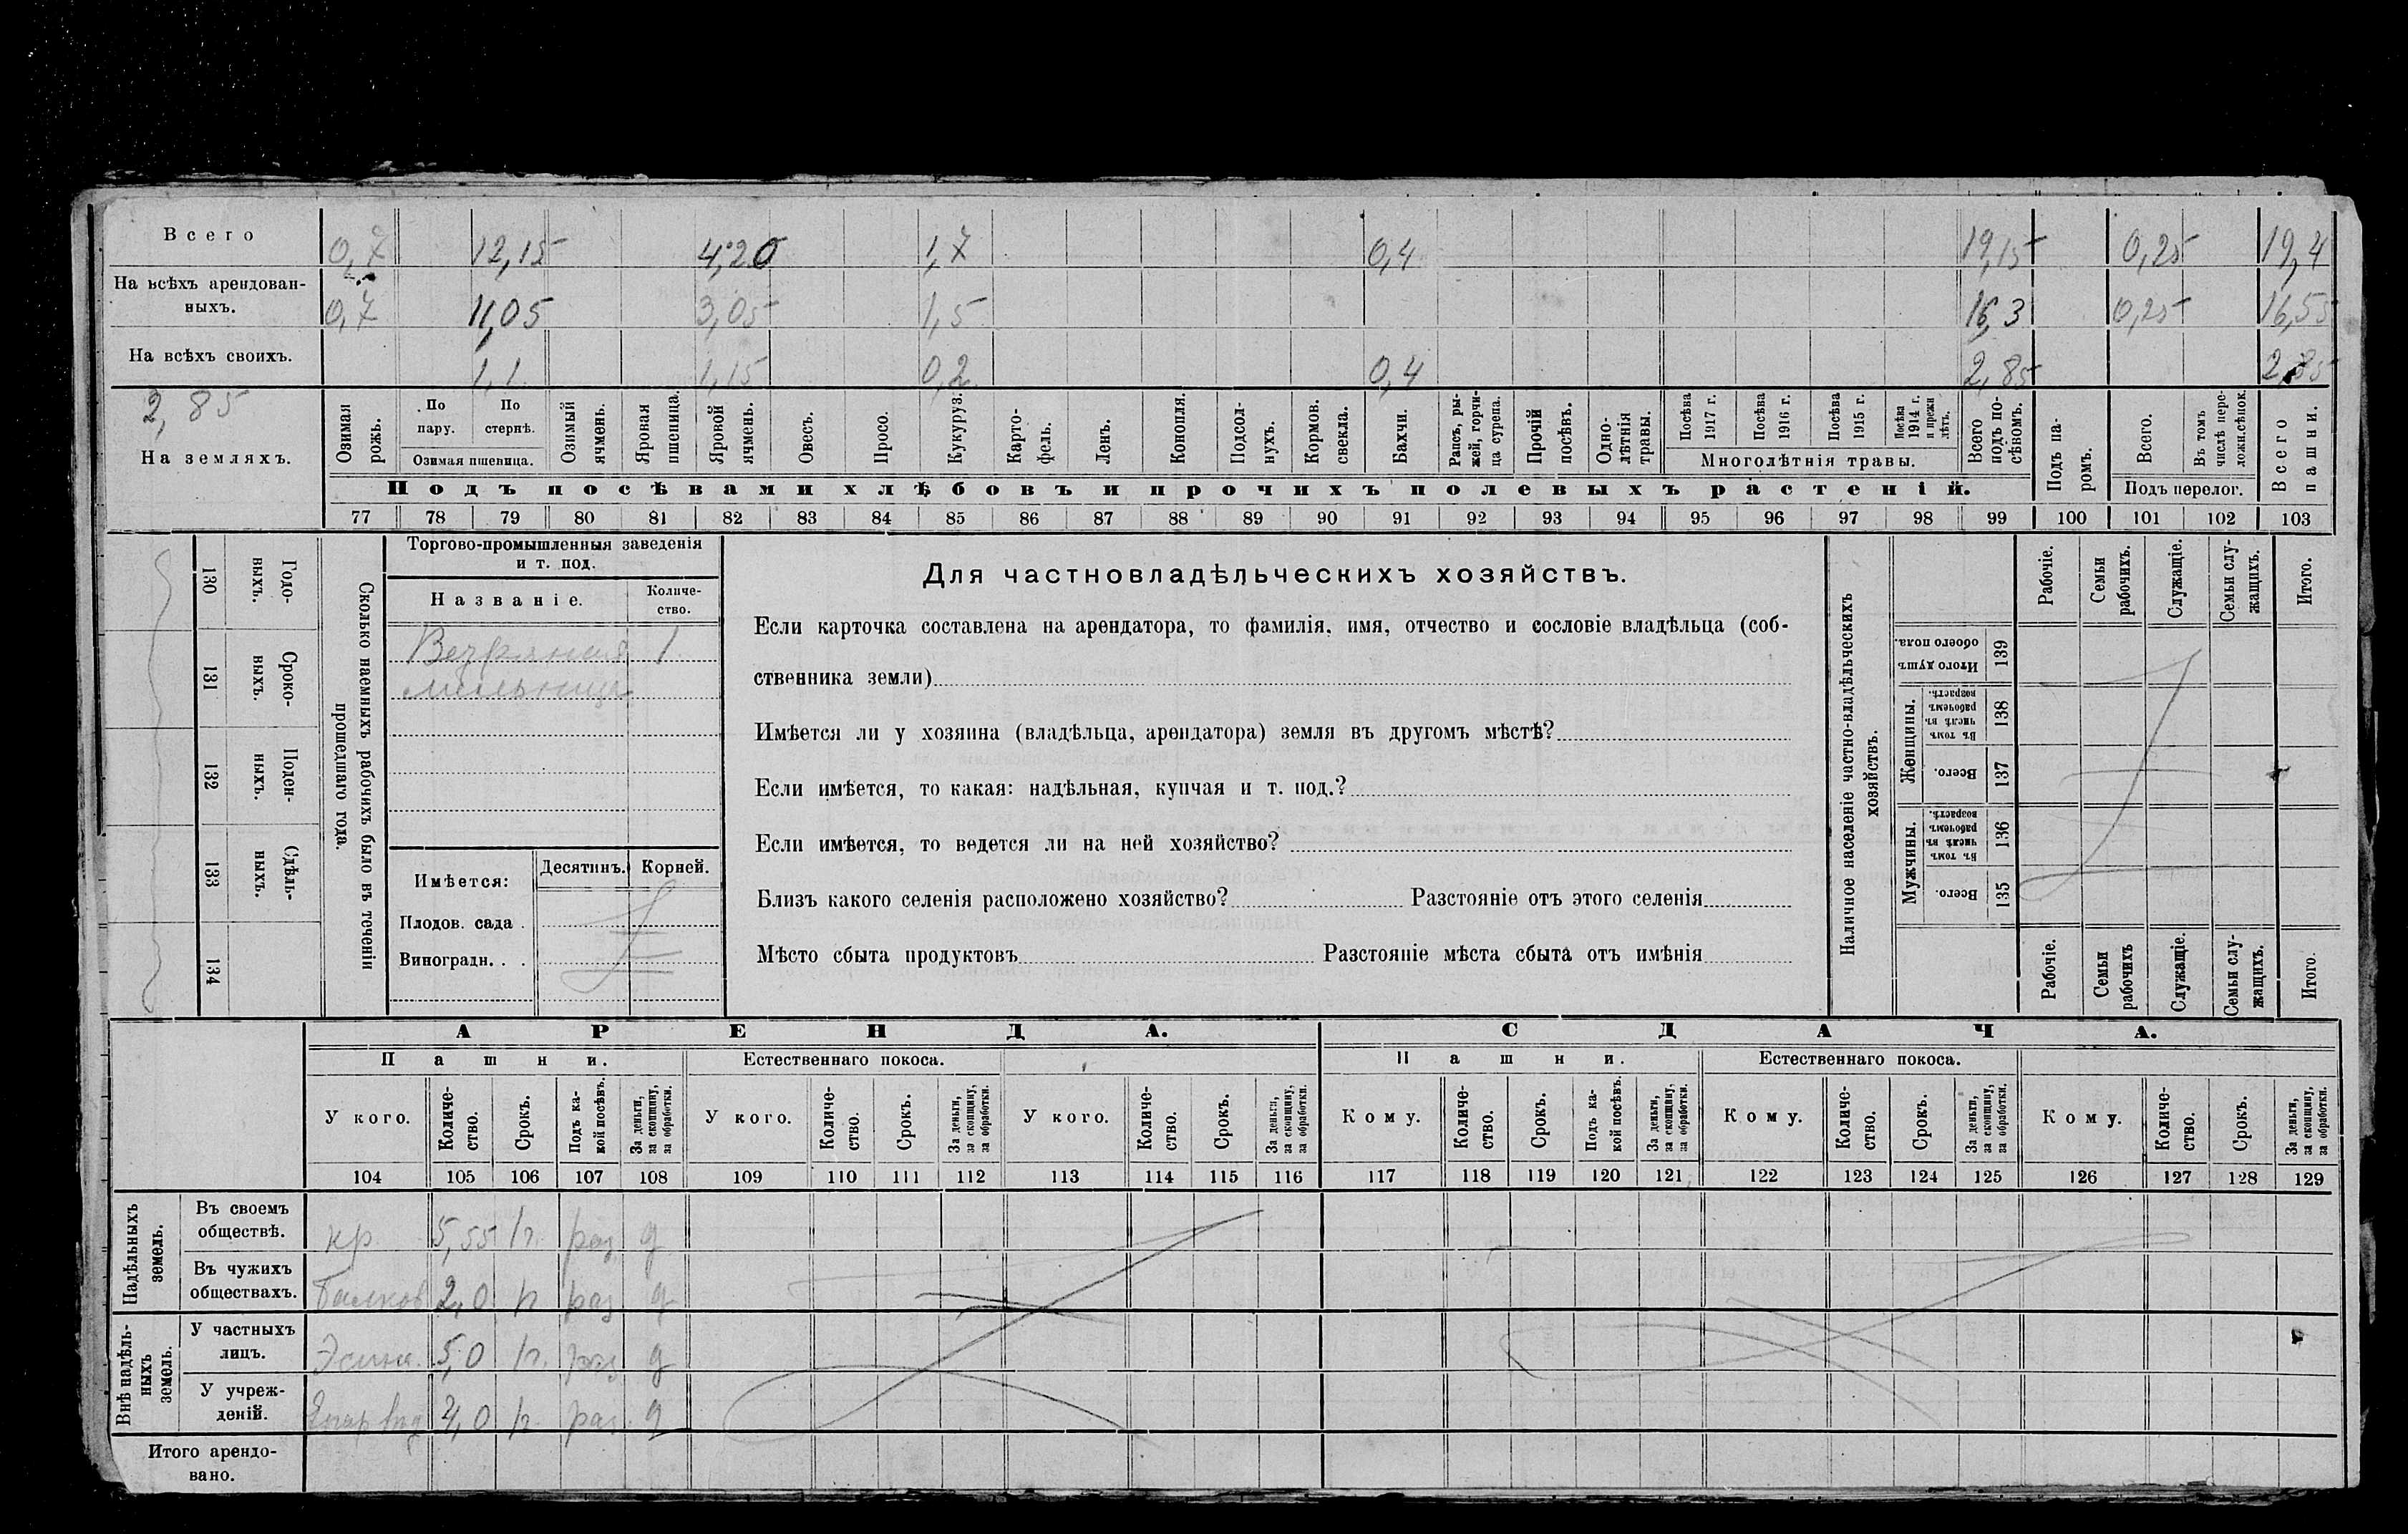 Всего 0,7 12,15 4,20 1,7 0,4 19,15 0,25 19,4
На всѣхъ арендован-
ныхъ. 0,7 11,05 3,05 1,5 16,3 0,25 16,55
На всѣхъ своихъ. 1,1 1,15 0,2 0,4 2,85 2,85
2,85
На земляхъ.
Озимая рожь.
По пару.
По стернѣ.
Озимая пшеница.
Озимый ячмень.
Яровая пшеница.
Яровой ячмень.
Овесъ.
Просо.
Кукуруз.
Карто-
фель.
Ленъ.
Конопля.
Подсол-
нухъ.
Кормов.
свекла.
Бахчи.
Рапсъ, ры-
жей, горчи-
ца сурепа.
Прочій
посѣвъ.
Одно-
лѣтнія
травы.
Посѣва
1917 г.
Посѣва
1916 г.
Посѣва
1915 г.
Посѣва
1914 г.
и прежн
лѣтъ.
Многолѣтнія травы.
Всего
подъ по-
сѣвомъ.
Подъ па-
ромъ.
Всего.
Въ томъ
числѣ пере-
ложн.сѣнок.
Подъ перелог.
Всего
пашни.
Подъ посѣвами хлѣбовъ и прочихъ полевыхъ растеній.
77 78 79 80 81 82 83 84 85 86 87 88 89 90 91 92 93 94 95 96 97 98 99 100 101 102 103
130
Годо-
выхъ.
131
Сроко-
ныхъ.
132
Поден-
ныхъ.
133
Сдѣль-
ныхъ.
134
Сколько наемныхъ рабочихъ было въ теченіи
прошедшаго года.
Торгово-промышленныя заведенія
и т. под.
Названіе.
Количе-
ство.
Вѣтряная 1
мельница
Имѣется:
Десятинъ. Корней.
Плодов. сада .
Виноградн. . .
Для частновладѣльческихъ хозяйствъ.
Если карточка составлена на арендатора, то фамилія, имя, отчество и сословіе владѣльца (соб-
ственника земли)
Имѣется ли у хозяина (владѣльца, арендатора) земля въ другомъ мѣстѣ?
Если имѣется, то какая: надѣльная, купчая и т. под.?
Если имѣется, то ведется ли на ней хозяйство?
Близъ какого селенія расположено хозяйство? Разстояніе отъ этого селенія
Мѣсто сбыта продуктовъ Разстояніе мѣста сбыта отъ имѣнія
Наличное населеніе частно-владѣльческихъ
хозяйствъ.
Рабочіе.
Семьи
рабочихъ.
Служащіе.
Семьи слу-
жащихъ.
Итого.
Итого душъ
обоего пола.
139
Женщины.
Въ томъ
числѣ въ
рабочемъ
возрастѣ.
138
Всего.
137
Мужчины.
Въ томъ
числѣ въ
рабочемъ
возрастѣ.
136
Всего.
135
Рабочіе.
Семьи
рабочихъ
Служащіе.
Семьи слу-
жащихъ.
Итого.
АРЕНДА. СДАЧА.
Пашни. Естественнаго покоса. Пашни. Естественнаго покоса.
У кого.
Количе-
ство.
Срокъ.
Подъ ка-
кой посѣвъ.
За деньги,
за скопщину,
за обработки.
У кого.
Количе-
ство.
Срокъ.
За деньги,
за скопщину,
за обработки.
У кого.
Количе-
ство.
Срокъ.
За деньги,
за скопщину,
за обработки.
Кому.
Количе-
ство.
Срокъ.
Подъ ка-
кой посѣвъ.
За деньги,
за скопщину,
за обработки.
Кому.
Количе-
ство.
Срокъ.
За деньги,
за скопщину,
за обработки.
Кому.
Количе-
ство.
Срокъ.
За деньги,
за скопщину,
за обработки.
104 105 106 107 108 109 110 111 112 113 114 115 116 117 118 119 120 121 122 123 124 125 126 127 128 129
Надѣльныхъ
земель.
Въ своемъ
обществѣ. кр. 5,55 1г. раз. д
Въ чужихъ
обществахъ. 2,0 1г раз д
Внѣ надѣль-
ныхъ
земель.
У частныхъ
лицъ. 5,0 1г. раз д
У учреж-
деній. 4,0 1г. раз. д
Итого арендо-
вано.